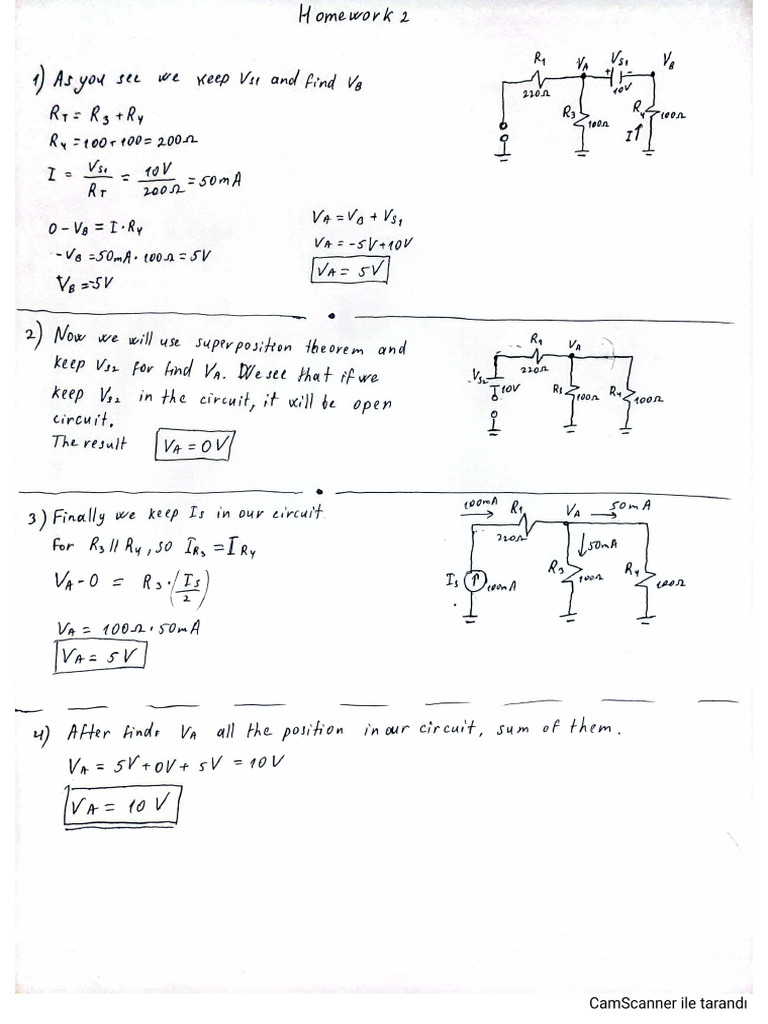 Homework 2
1) As you see we keep Vs1 and find VB
RT = R3 + R4
R4 = 100+100 = 200Ω
I = Vs1/RT = 10V/200Ω = 50mA
0 - VB = I · R4
-VB = 50mA · 100Ω = 5V
VB = -5V
VA = VB + Vs1
VA = -5V + 10V
VA = 5V
R1
220Ω
VA
Vs1
+
10V
VB
R3
100Ω
R4
100Ω
I
2) Now we will use superposition theorem and
keep Vs2 for find VA. We see that if we
keep Vs2 in the circuit, it will be open
circuit.
The result VA = 0V
Vs2
10V
R1
220Ω
VA
R3
100Ω
R4
100Ω
3) Finally we keep Is in our circuit
For R3 // R4, so IR3 = IR4
VA - 0 = R3 · (Is/2)
VA = 100Ω · 50mA
VA = 5V
100mA
R1
220Ω
VA
50mA
50mA
Is
100mA
R3
100Ω
R4
100Ω
4) After finds VA all the position in our circuit, sum of them.
VA = 5V + 0V + 5V = 10V
VA = 10 V
CamScanner ile tarandı